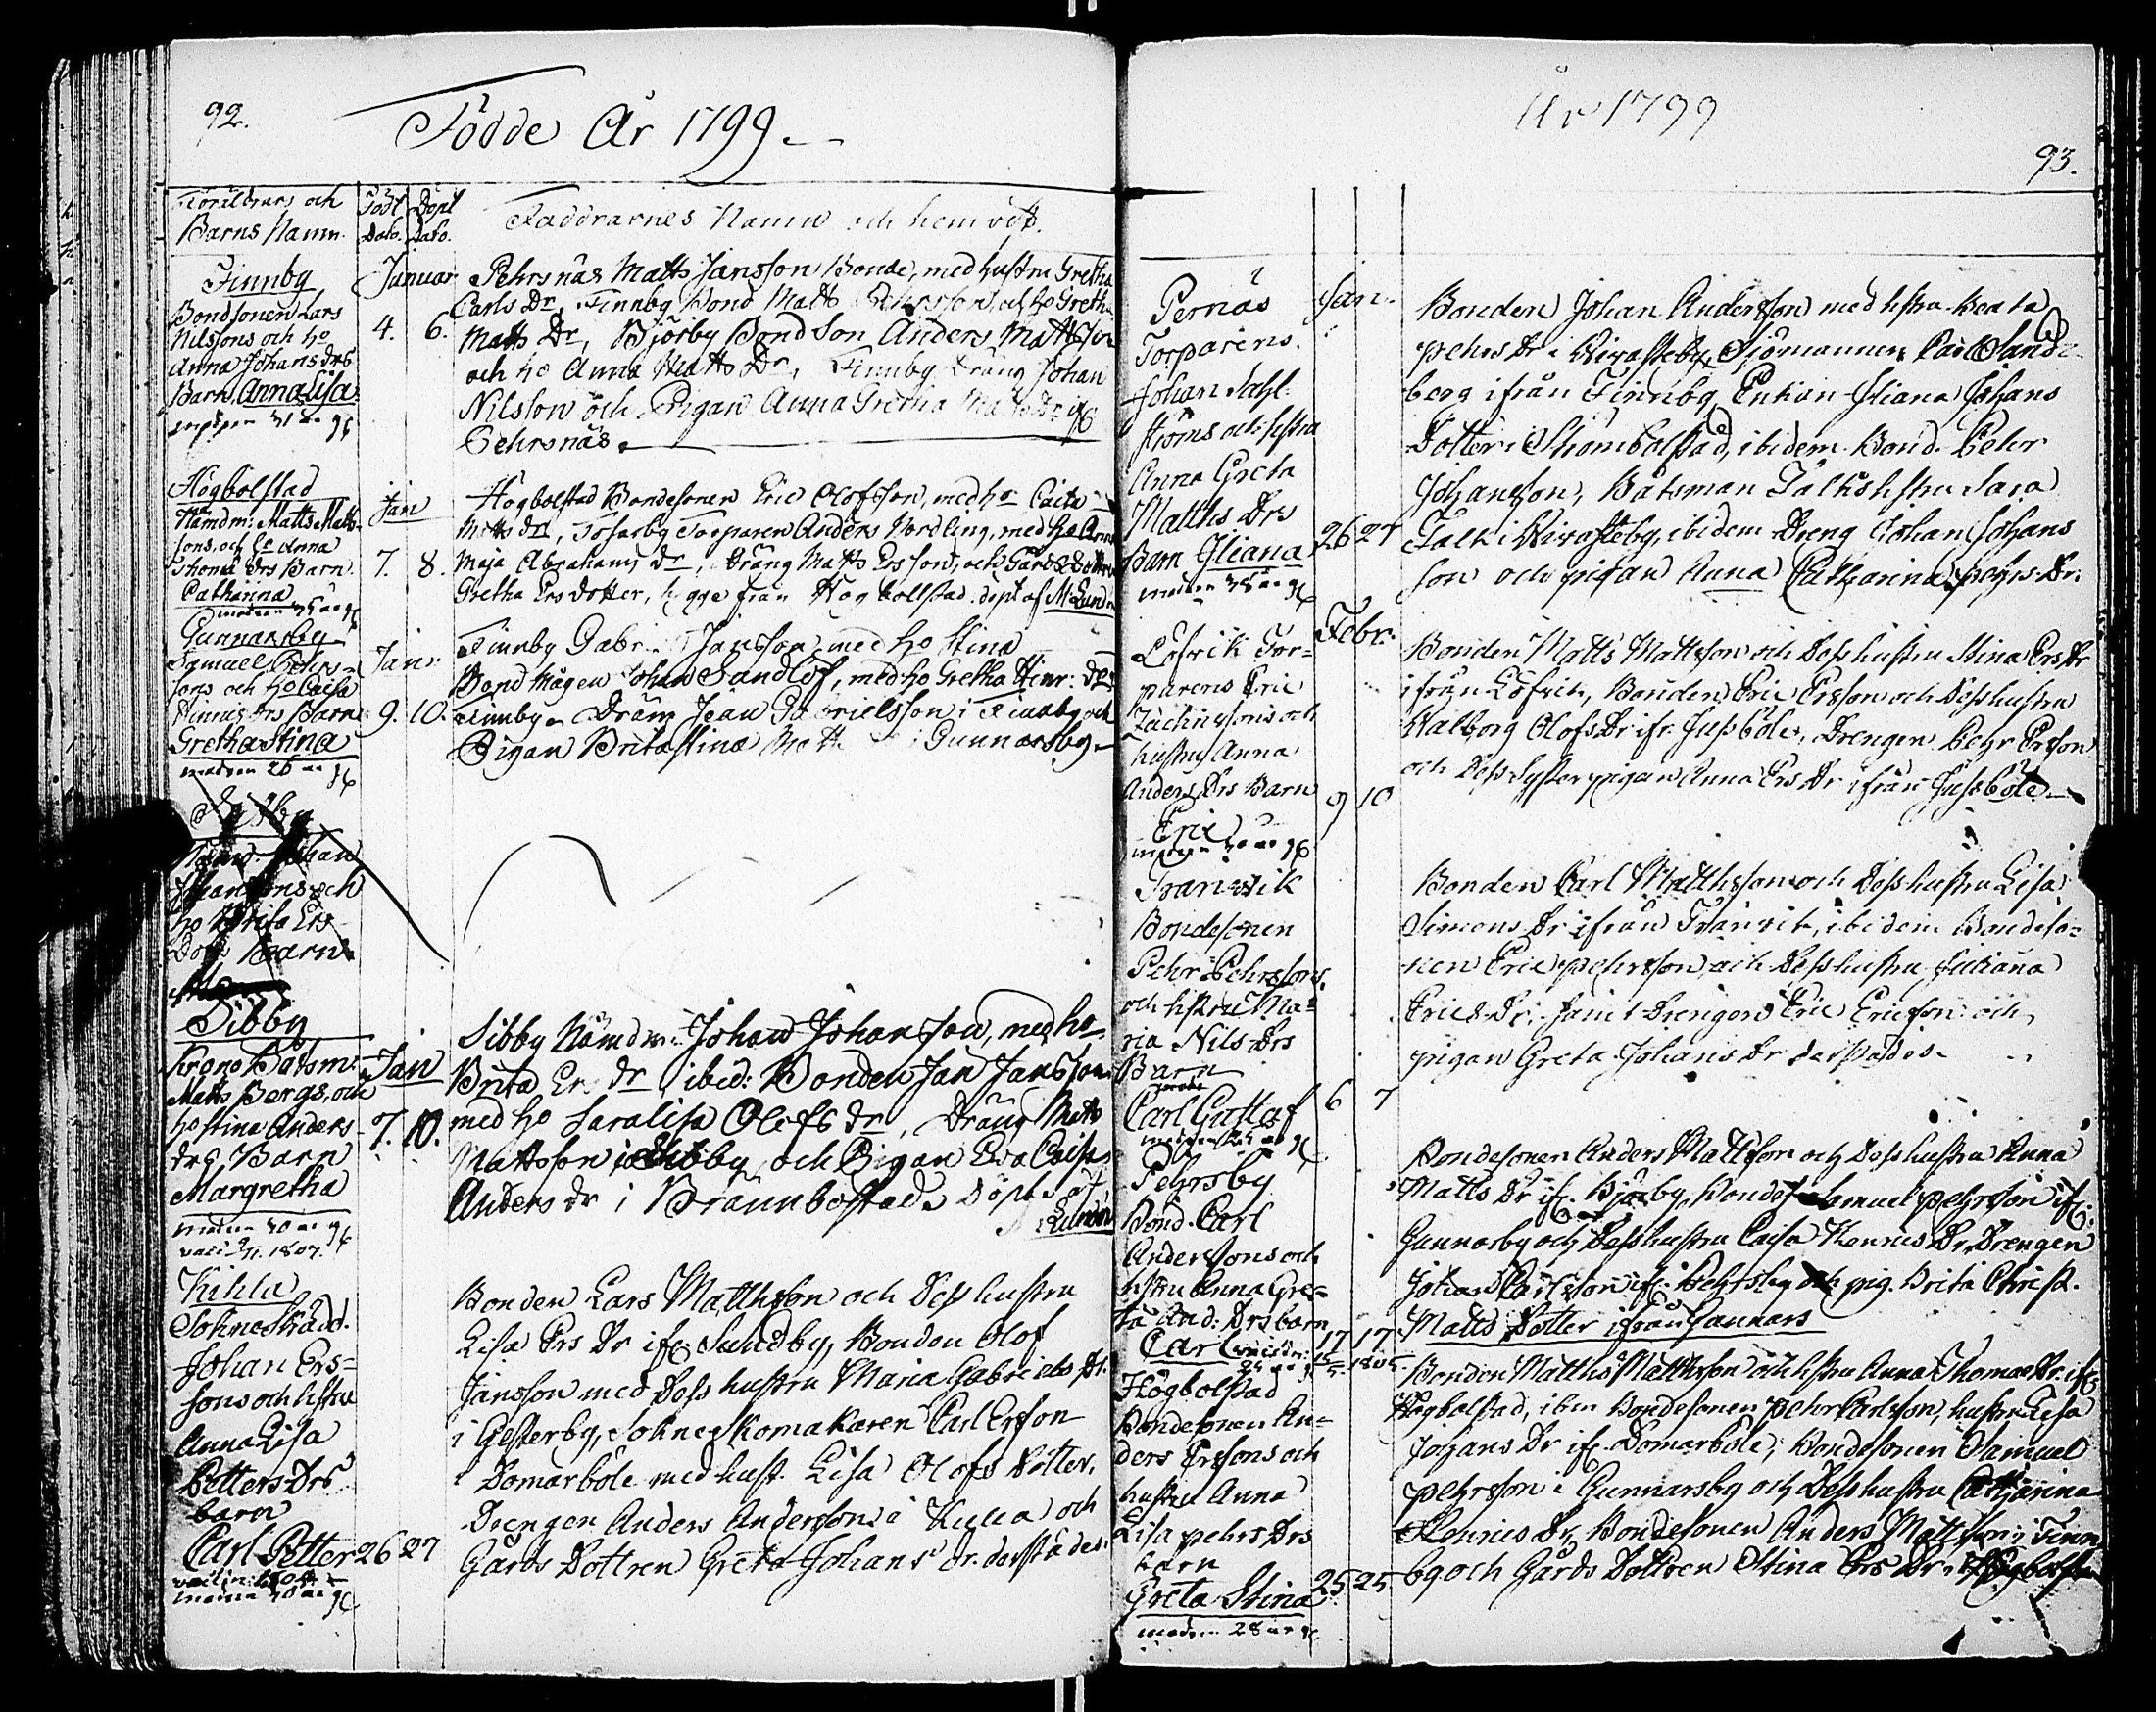 92.
Födde År 1799.
Föräldrars och
Barns Namn.
Födt
Dato.
Döpt
Dato.
Faddrarnes Namn och hemvist.
Finnby
Bondsonen Lars
Nilssons och ho
Anna Johans drs
Barn Anna Lisa
Januar
4. 6.
Pehrsnäs Matts Jansson Bonde, med hustru Gretha
Carls Dr, Finnby Bond Matts Pehrsson, och ho Gretha
Matts Dr, Björby Bond Son Anders Mattsson
och ho Anna Matts Dr, Finnby Dräng Johan
Nilsson och Pigan Anna Gretha Matts Dr
Pehrsnäs.
Högbolstad
Nämdm: Matts Matts-
sons, och ho Anna
Thomæ Drs Barn
Catharina
modren 35 år
Jan
7. 8.
Högbolstad Bondesonen Eric Olofsson, med ho Caisa
Matts dr, Torparen Anders Nordling, med ho Anna
Maja Abrahams dr, dräng Matts Ersson, och Gårds dottren
Gretha Ers dotter, bägge från Högbolstad. döpt af M: Lundén
Gunnarsby
Samuel Pehrs-
sons och ho Caisa
Hinrics drs Barn
Gretha Stina
modren 26 år
Jan:
9. 10.
Finnby Gabr. Jansson med ho Stina
Bond Mågen Johan Sandlöf, med ho Gretha Hinr: dr
Finnby. Dräng Jean Gabrielsson i Finnby och
Pigan Brita Stina Matts i Gunnarsby.
Nämd. Johan
Johanssons och
ho Brita Ers
Dott Barn
Sibby
Krono Båtsm:
Matts Bergs, och
ho Stina Anders
drs Barn
Margretha
modren 30 år
Jan
7. 10.
Sibby Nämdm: Johan Johansson, med ho
Brita Ers dr, ibid: Bonden Jan Jansson
med ho Saralisa Olofs dr, Dräng Matts
Mattsson i Sibby, och Pigan Eva Caisa
Anders dr i Brännbolstad. Döpt af
Lundén
Kihla
Sokneskrädd.
Johan Ers-
sons och hstru
Anna Lisa
Petters Drs
barn
Carl Petter
modren 30 år
26 27
Bonden Lars Matthsson och Dess hustru
Lisa Ers Dr ifr. Sundby, Bonden Olof
Jansson med Dess hustru Maria Gabriels Dr.
i Gesterby, Sokneskomakaren Carl Ersson
i Domarböle med hust. Lisa Olofs Dotter,
Drengen Anders Andersson i Kihla och
Gårds Dottren Greta Johans Dr. derstädes.
År 1799
93.
Pernäs
Torparens
Johan Sahl-
ströms och hstru
Anna Greta
Matths Drs
Barn Juliana
modren 35 år
Jan.
26 27
Bonden Johan Andersson med hstru Beata
Pehrs Dr i Hirasteby, Sjömannen Carl Sand-
berg ifrån Finnby, Enkan Juliana Johans
Dotter i Strömbolstad, ibidem Bond. Pehr
Johansson, Båtsman Falks hstru Sara
Falk i Hirasteby, ibidem Dreng Johan Johans
son och pigan Anna Catharina Pehrs Dr.
Löfvik Tor-
parens Eric
Zachrissons och
hustru Anna
Anders Drs Barn
Eric
Febr.
9 10
Bonden Matts Mattsson och Dess hustru Stina Ers Dr
ifrån Löfvik, Bonden Eric Ersson och Dess hustru
Walborg Olofs Dr ifr. Jussböle, Drengen Pehr Ersson
och Dess Syster pigan Anna Ers Dr ifrån Jussböle.
Tranvik
Bondesonen
Pehr Pehrssons
och hstru Ma-
ria Nils Drs
Barn
Carl Gustaf
6 7
Bonden Carl Matthsson och Dess hustru Lisa
Simons Dr ifrån Tranvik, ibidem Bondeso-
nen Eric Pehrsson och Dess hustru Juliana
Erics Dr. samt Drengen Eric Ericsson och
pigan Greta Johans Dr derstädes.
Pehrsby
Bond. Carl
Anderssons och
hstru Anna Gre-
ta And: Drs barn
Carl
17 17
Bondesonen Anders Mattsson och Dess hustru Anna
Matts Dr ifr. Björby, Bondes. Samuel Pehrsson ifr.
Gunnarsby och Dess hustru Caisa Henrics Dr, Drengen
Johan Carlsson ifr. Pehrsby och pig. Brita Christ.
Matts Dotter ifrån Gunnars
Högbolstad
Bondesonen An-
ders Erssons och
hustru Anna
Lisa Pehrs Drs
barn
Greta Stina
modren 28 år
25 25
Bonden Matths Matthsson och hstru Anna Thomæ Dr. ifr.
Högbolstad, ibm Bondesonen Pehr Carlsson, hustru Lisa
Johans Dr ifr. Domarböle, Bondesonen Samuel
Pehrsson i Gunnarsby och Dess hustru Catharina
Henrics Dr, Bondesonen Anders Mattsson i Finn
by och Gårds Dottren Stina Ers Dr i Högbolstad